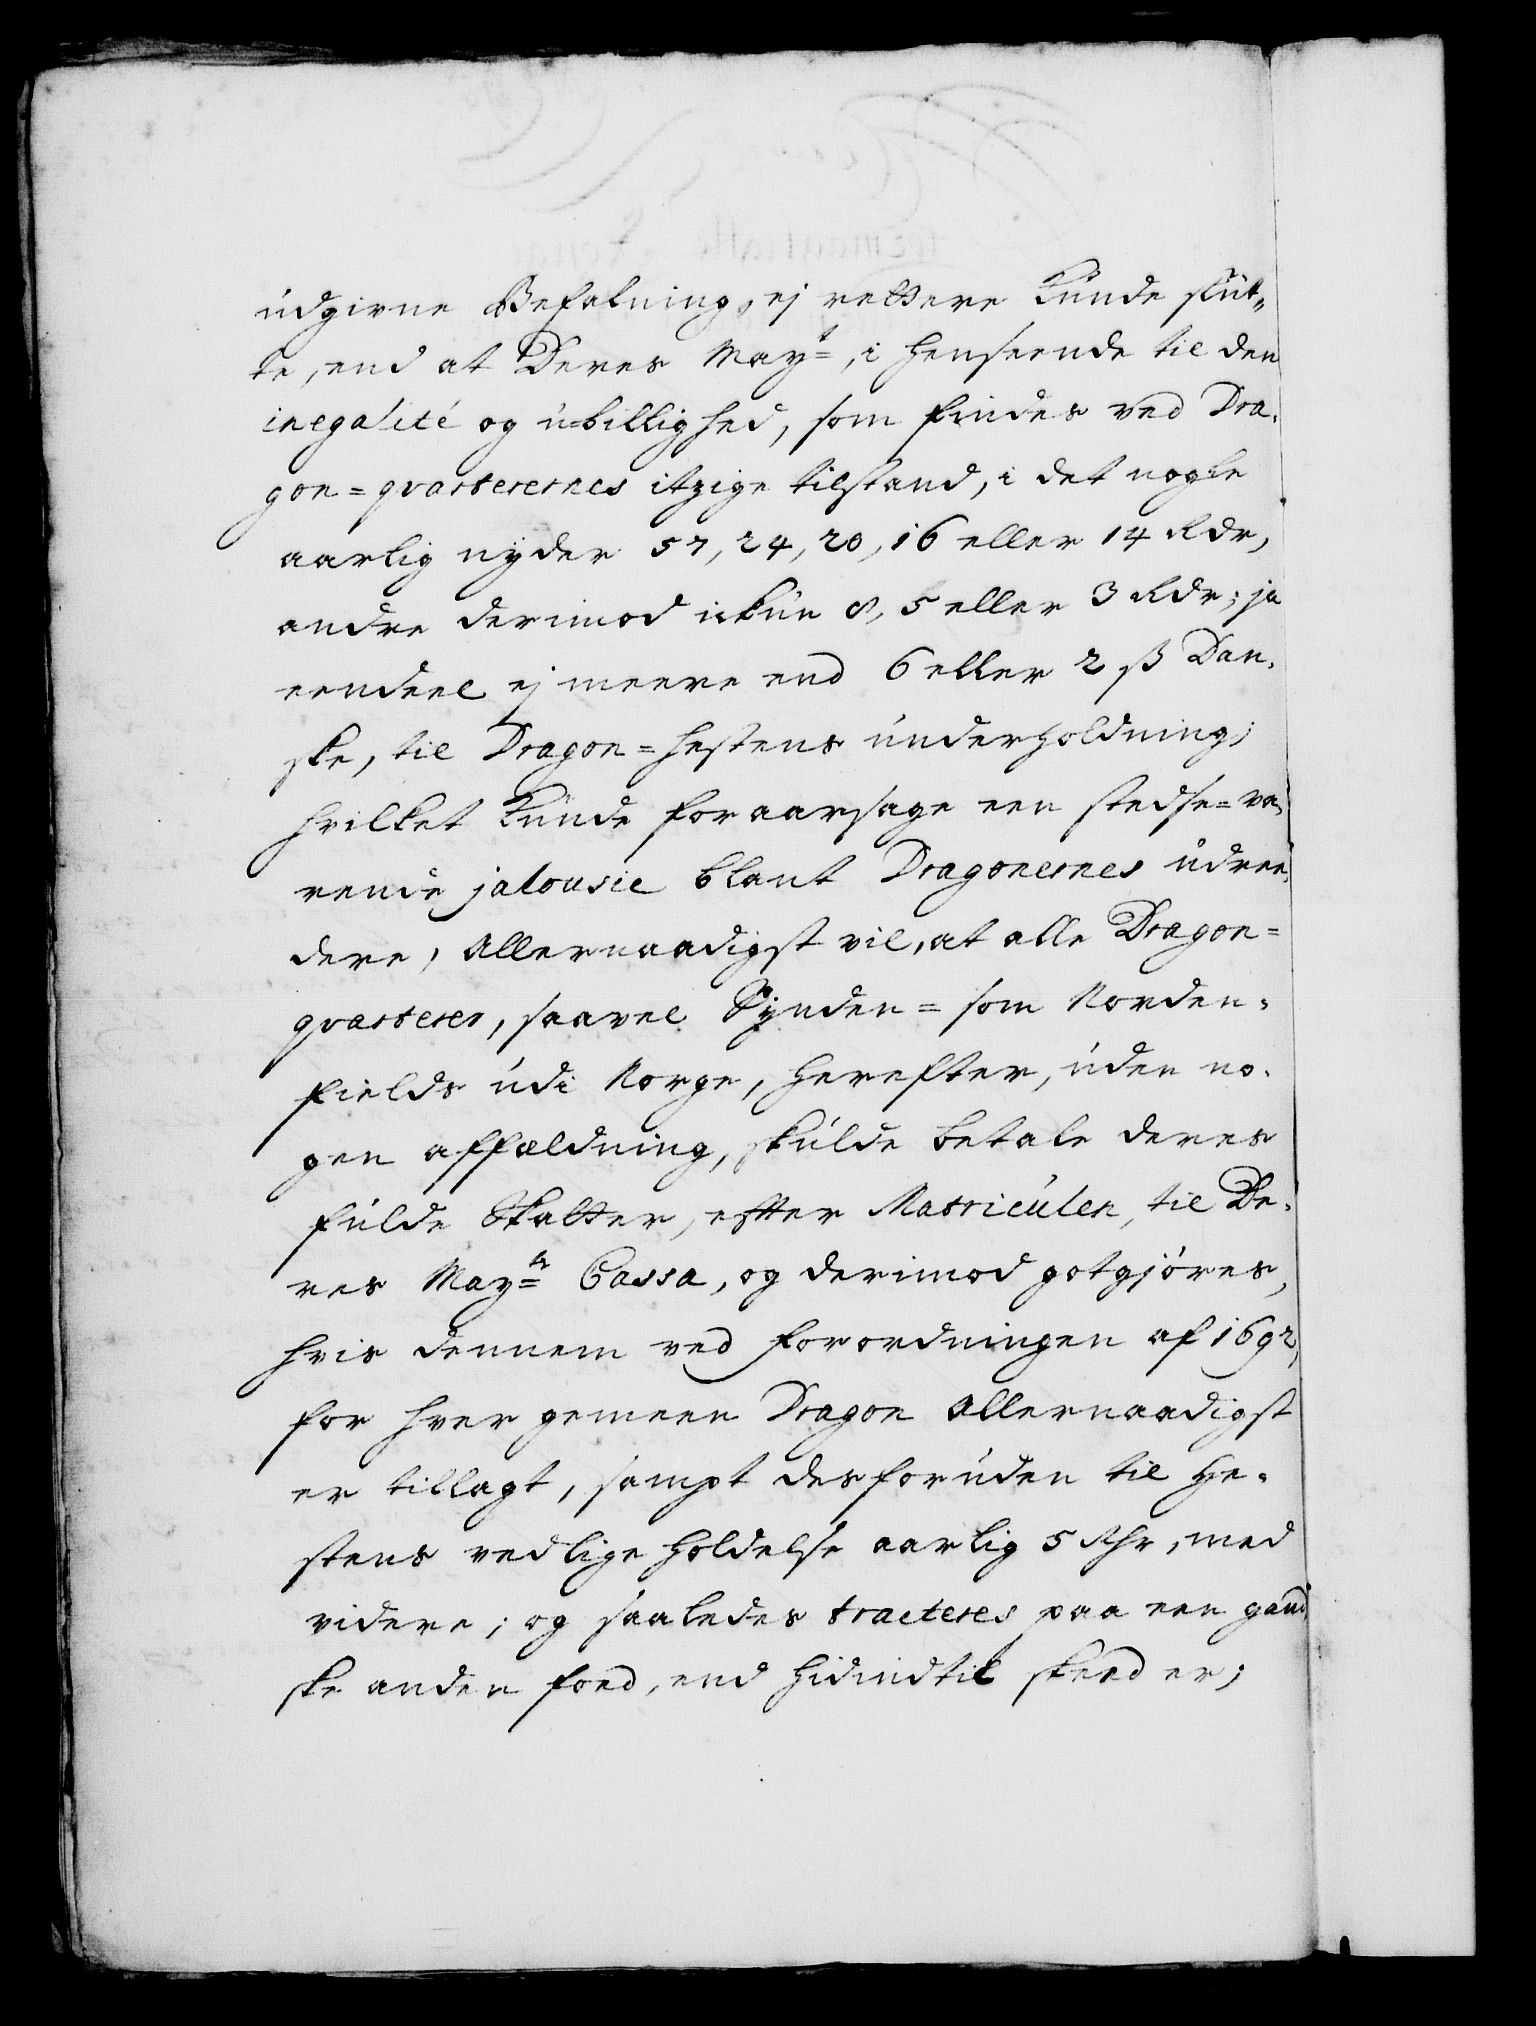 udgivne Befalning, ej rettere kunde slut-
te, end at Deres May:t, i henseende til den
inegalité og ubillighed, som findes ved Dra-
gon=qvarterernes itzige tilstand, i det nogle
aarlig nyder 57, 24, 20, 16 eller 14 Rdr,
andre derimod ikkun 8, 5 eller 3 Rdr; ja
eendeel ej meere end 6 eller 2 ß Dan-
ske, til Dragon=hestens underholdning;
hvilket kunde foraarsage een stedse=va-
rende jalousie blant Dragonernes udree-
dere, Allernaadigst vil, at alle Dragon=
qvarterer, saavel Synden= som Norden-
fields udi Norge, herefter, uden no-
gen affældning, skulde betale deres
fulde Skatter, efter Matriculen, til De-
res May:ts Cassa, og derimod gotgjøres,
hvis dennem ved Forordningen af 1692,
for hver gemeen Dragon Allernaadigst
er tillagt, sampt desforuden til He-
stens vedlige holdelse aarlig 5 Rdr, med
videre; og saaledes tracteres paa een gand-
ske anden foed, end hidindtil skeed er;